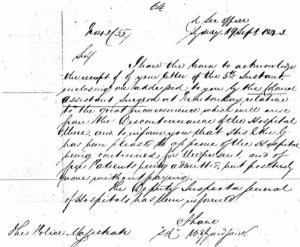 Col Sec Office
Sydney 19 Sept 1843
Sir
I have the honor to acknowledge
the receipt of your letter of the 5th Instant
inclosing one addressed to you by the Colonial
Assistant Surgeon at relation
to the great inconvenience which will arise
from the Discontinuance of the Hospital
there, and to inform you that His Excy
has been pleased to approve of the Hospital
being continued for the present, and of
Patients being admitted, but positively
none without paying.
The Deputy Inspector General
of Hospitals has been informed
I have
The Police Magistrate